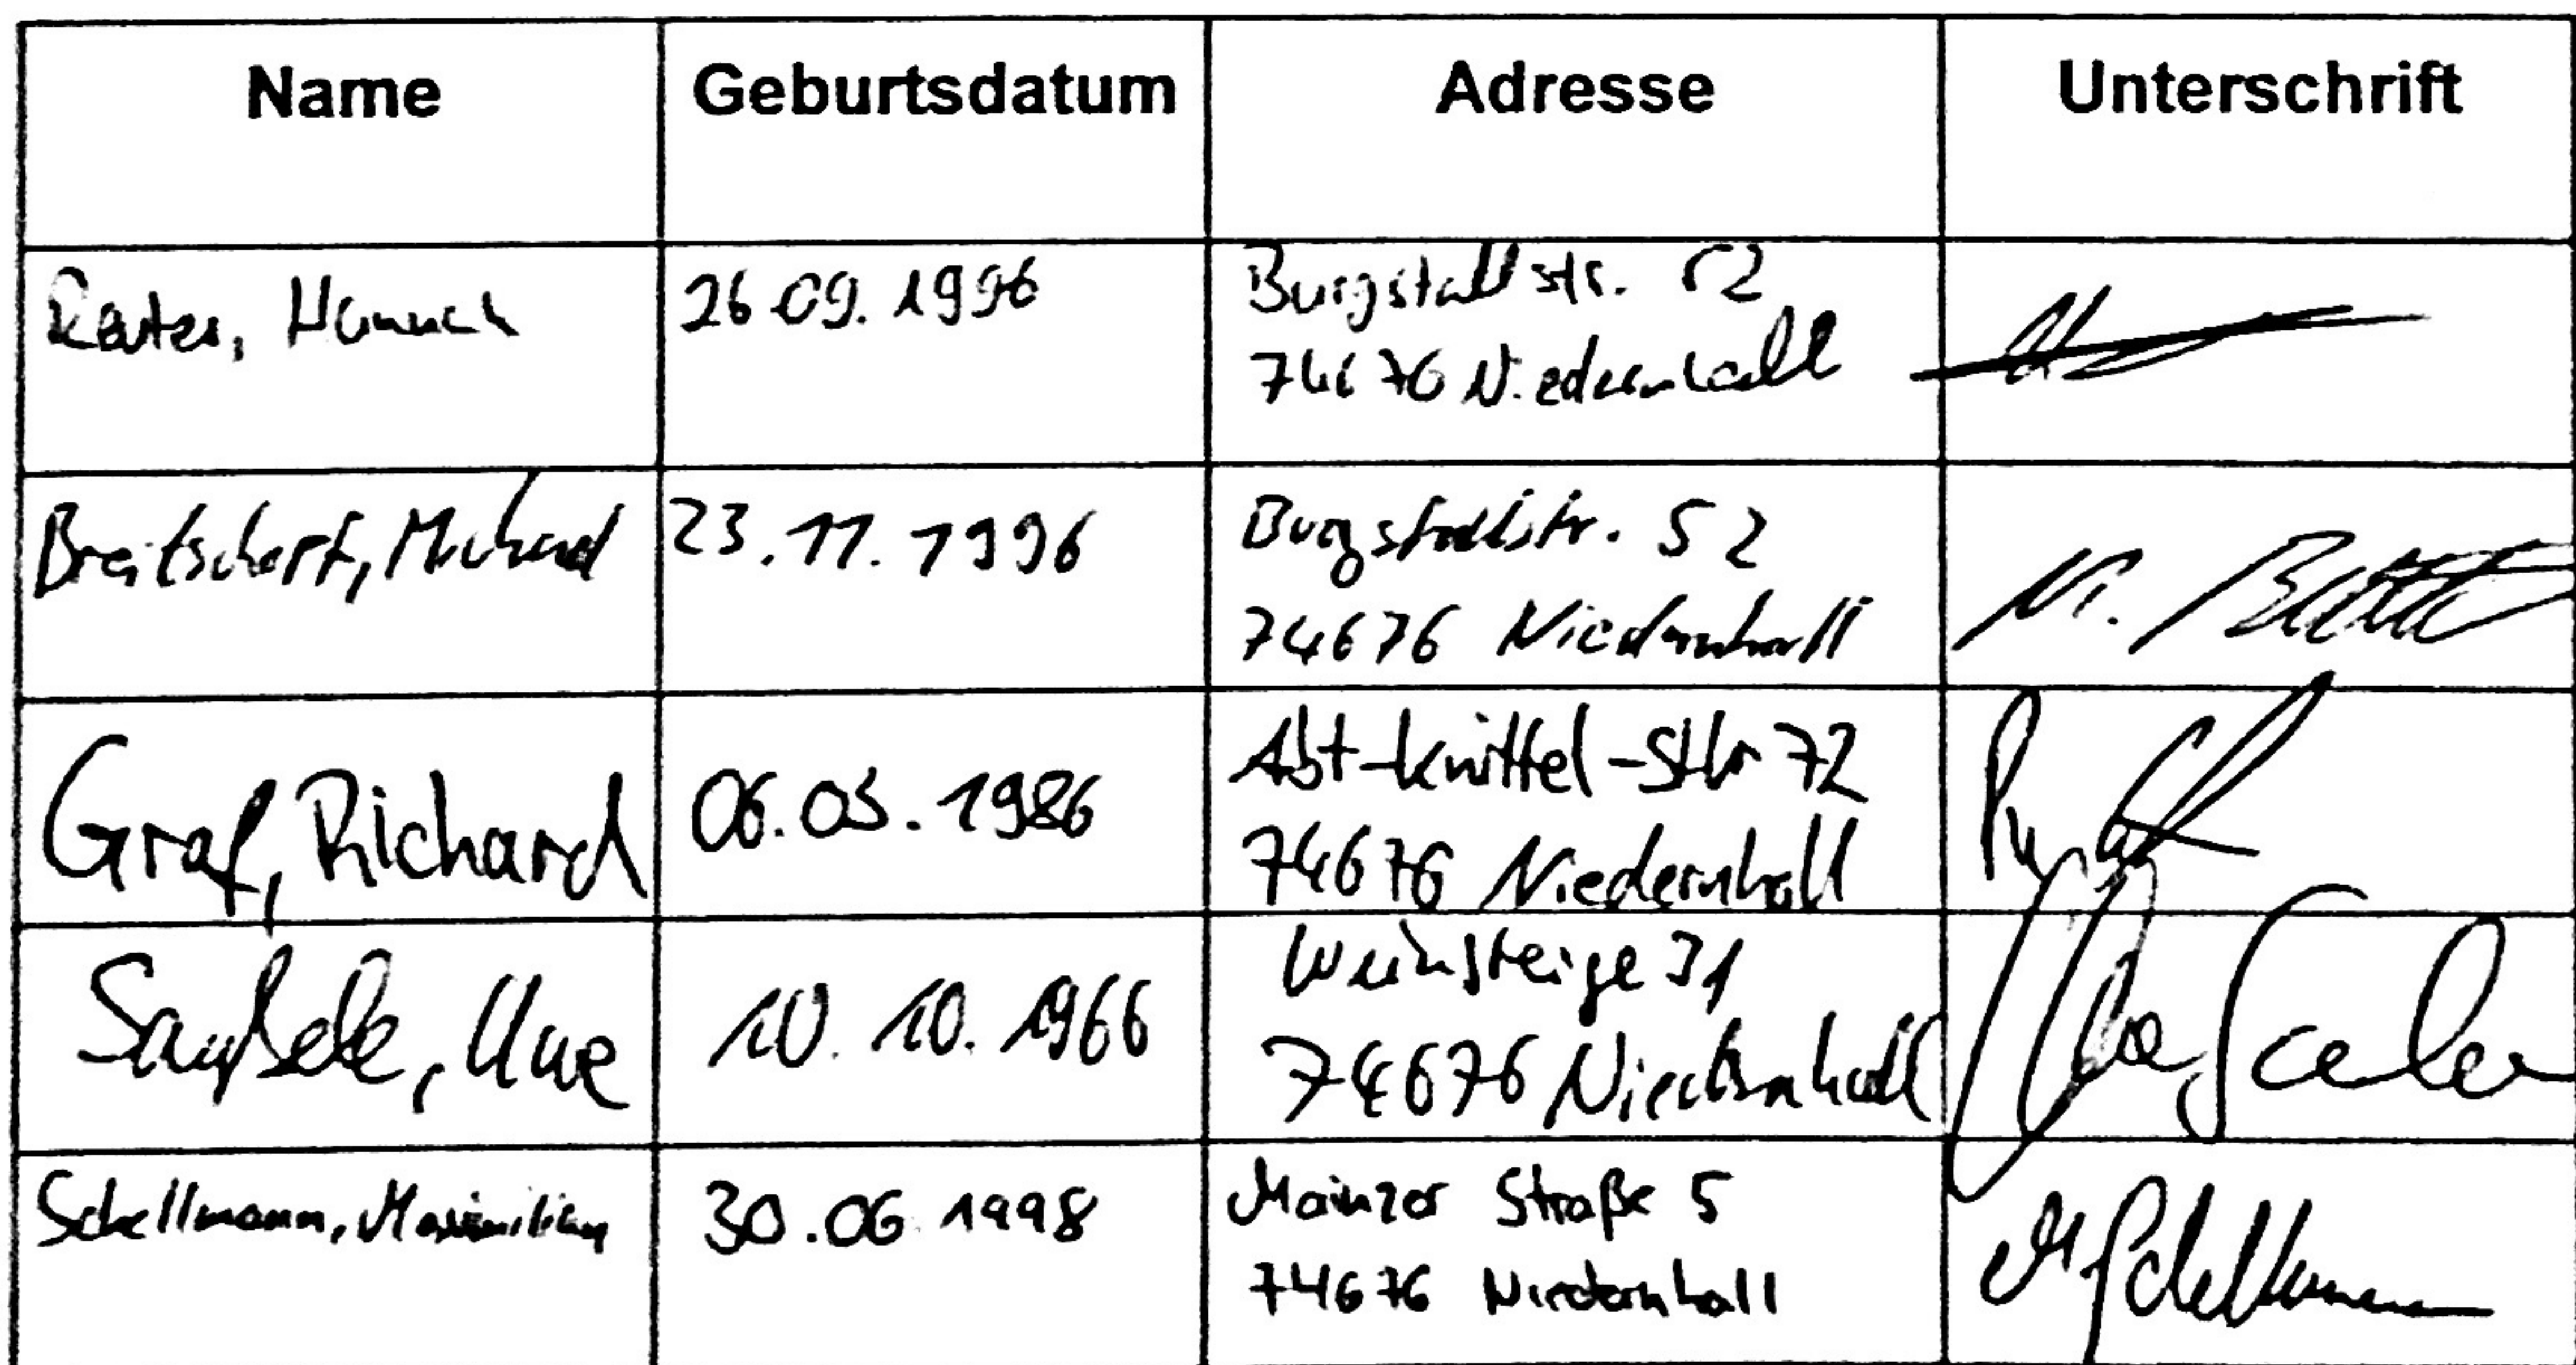 Name Geburtsdatum Adresse Unterschrift
Reuter, 26.09.1996 Burgstallstr. 52
74676 Niedernhall
Breitschopf, Michael 23.11.1996 Burgstallstr. 52
74676 Niedernhall
M.
Graf, Richard 06.05.1986 Abt-Knittel-Str 72
74676 Niedernhall
Saußele, Uwe 10.10.1966 Weinsteige 31
74676 Niedernhall
Schellmann, Maximilian 30.06.1998 Mainzer Straße 5
74676 Niedernhall
M Schellmann